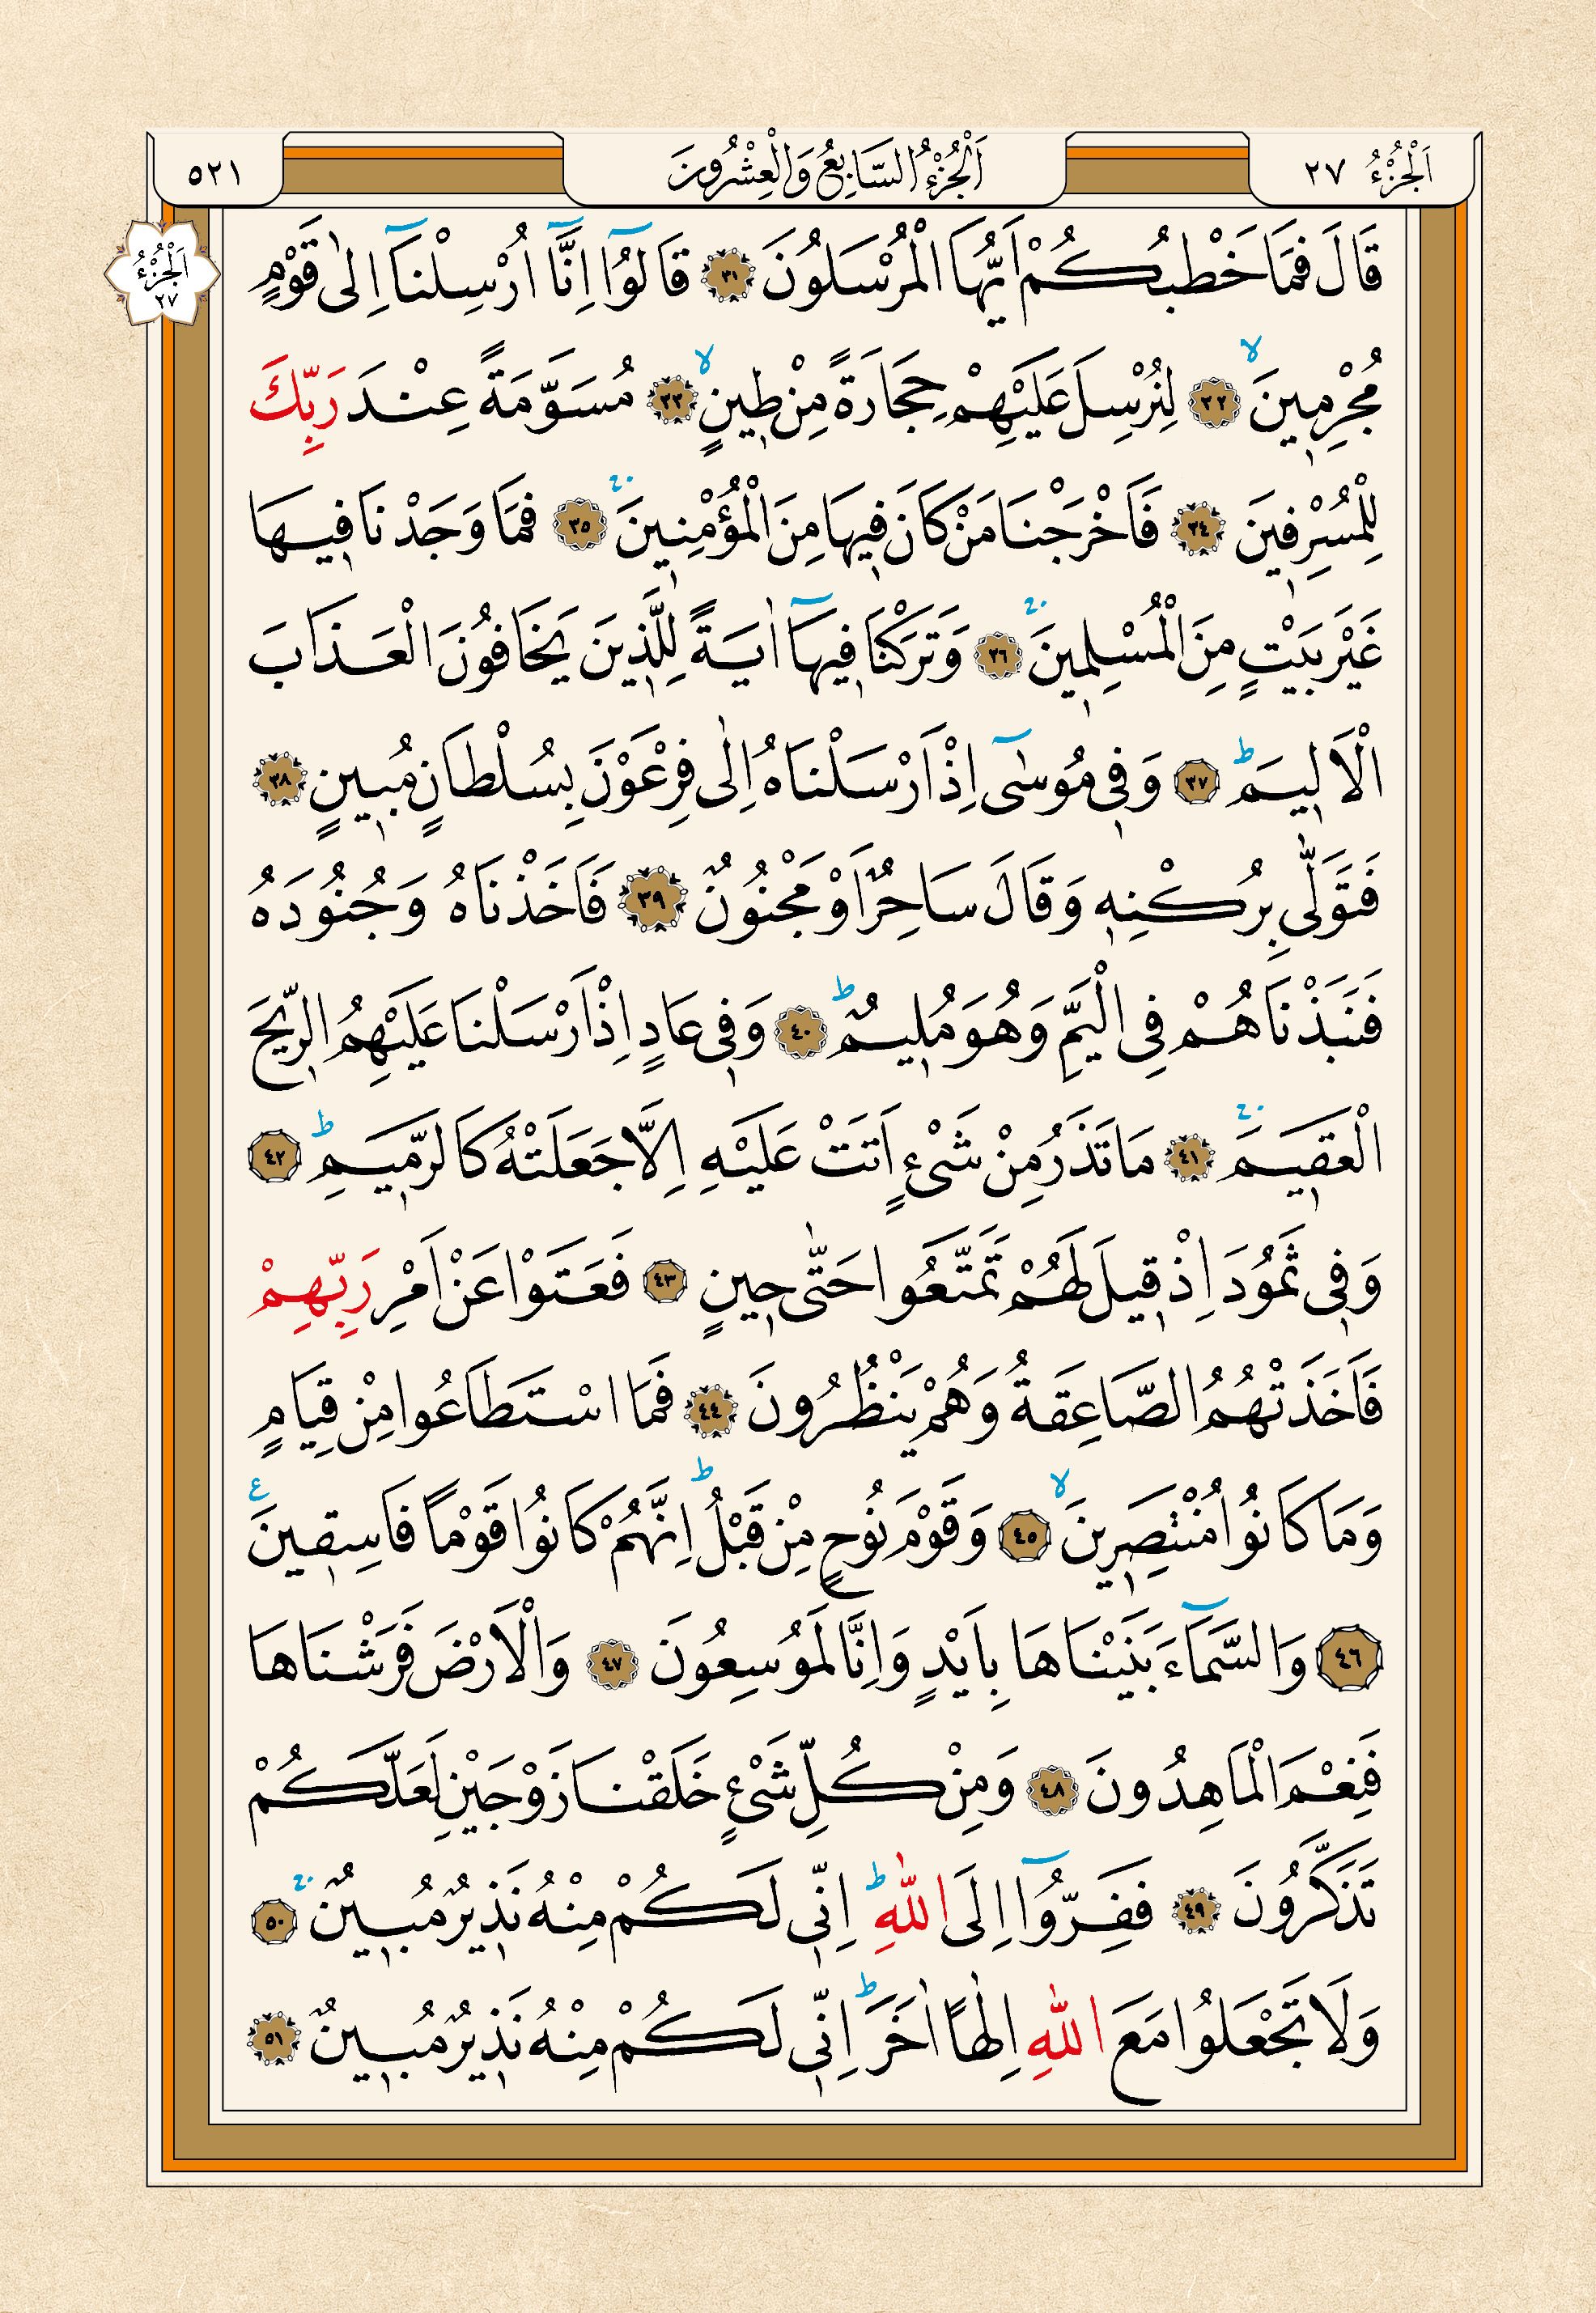 اَلْجُزْءُ ٢٧
اَلْجُزْءُ السَّابِعُ وَالْعِشْرُونَ
٥٢١
اَلْجُزْءُ ٢٧
قَالَ فَمَا خَطْبُكُمْ اَيُّهَا الْمُرْسَلُونَ ﴿٣١﴾ قَالُٓوا اِنَّٓا اُرْسِلْنَٓا اِلٰى قَوْمٍ
مُجْرِم۪ينَۙ ﴿٣٢﴾ لِنُرْسِلَ عَلَيْهِمْ حِجَارَةً مِنْ ط۪ينٍۙ ﴿٣٣﴾ مُسَوَّمَةً عِنْدَ رَبِّكَ
لِلْمُسْرِف۪ينَ ﴿٣٤﴾ فَاَخْرَجْنَا مَنْ كَانَ ف۪يهَا مِنَ الْمُؤْمِن۪ينَۚ ﴿٣٥﴾ فَمَا وَجَدْنَا ف۪يهَا
غَيْرَ بَيْتٍ مِنَ الْمُسْلِم۪ينَۚ ﴿٣٦﴾ وَتَرَكْنَا ف۪يهَٓا اٰيَةً لِلَّذ۪ينَ يَخَافُونَ الْعَذَابَ
الْاَل۪يمَۜ ﴿٣٧﴾ وَف۪ي مُوسٰٓى اِذْ اَرْسَلْنَاهُ اِلٰى فِرْعَوْنَ بِسُلْطَانٍ مُب۪ينٍ ﴿٣٨﴾
فَتَوَلّٰى بِرُكْنِه۪ وَقَالَ سَاحِرٌ اَوْ مَجْنُونٌ ﴿٣٩﴾ فَاَخَذْنَاهُ وَجُنُودَهُ
فَنَبَذْنَاهُمْ فِي الْيَمِّ وَهُوَ مُل۪يمٌۜ ﴿٤٠﴾ وَف۪ي عَادٍ اِذْ اَرْسَلْنَا عَلَيْهِمُ الرّ۪يحَ
الْعَق۪يمَۚ ﴿٤١﴾ مَا تَذَرُ مِنْ شَيْءٍ اَتَتْ عَلَيْهِ اِلَّا جَعَلَتْهُ كَالرَّم۪يمِۜ ﴿٤٢﴾
وَف۪ي ثَمُودَ اِذْ ق۪يلَ لَهُمْ تَمَتَّعُوا حَتّٰى ح۪ينٍ ﴿٤٣﴾ فَعَتَوْا عَنْ اَمْرِ رَبِّهِمْ
فَاَخَذَتْهُمُ الصَّاعِقَةُ وَهُمْ يَنْظُرُونَ ﴿٤٤﴾ فَمَا اسْتَطَاعُوا مِنْ قِيَامٍ
وَمَا كَانُوا مُنْتَصِر۪ينَۙ ﴿٤٥﴾ وَقَوْمَ نُوحٍ مِنْ قَبْلُۜ اِنَّهُمْ كَانُوا قَوْمًا فَاسِق۪ينَ ع
﴿٤٦﴾ وَالسَّمَٓاءَ بَنَيْنَاهَا بِاَيْدٍ وَاِنَّا لَمُوسِعُونَ ﴿٤٧﴾ وَالْاَرْضَ فَرَشْنَاهَا
فَنِعْمَ الْمَاهِدُونَ ﴿٤٨﴾ وَمِنْ كُلِّ شَيْءٍ خَلَقْنَا زَوْجَيْنِ لَعَلَّكُمْ
تَذَكَّرُونَ ﴿٤٩﴾ فَفِرُّٓوا اِلَى اللّٰهِۜ اِنّ۪ي لَكُمْ مِنْهُ نَذ۪يرٌ مُب۪ينٌۚ ﴿٥٠﴾
وَلَا تَجْعَلُوا مَعَ اللّٰهِ اِلٰهًا اٰخَرَۜ اِنّ۪ي لَكُمْ مِنْهُ نَذ۪يرٌ مُب۪ينٌ ﴿٥١﴾